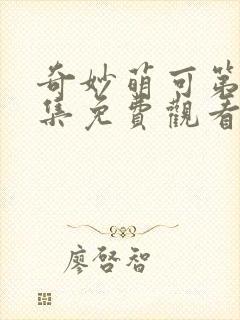 奇妙萌可第
集免費觀看
廖啓智